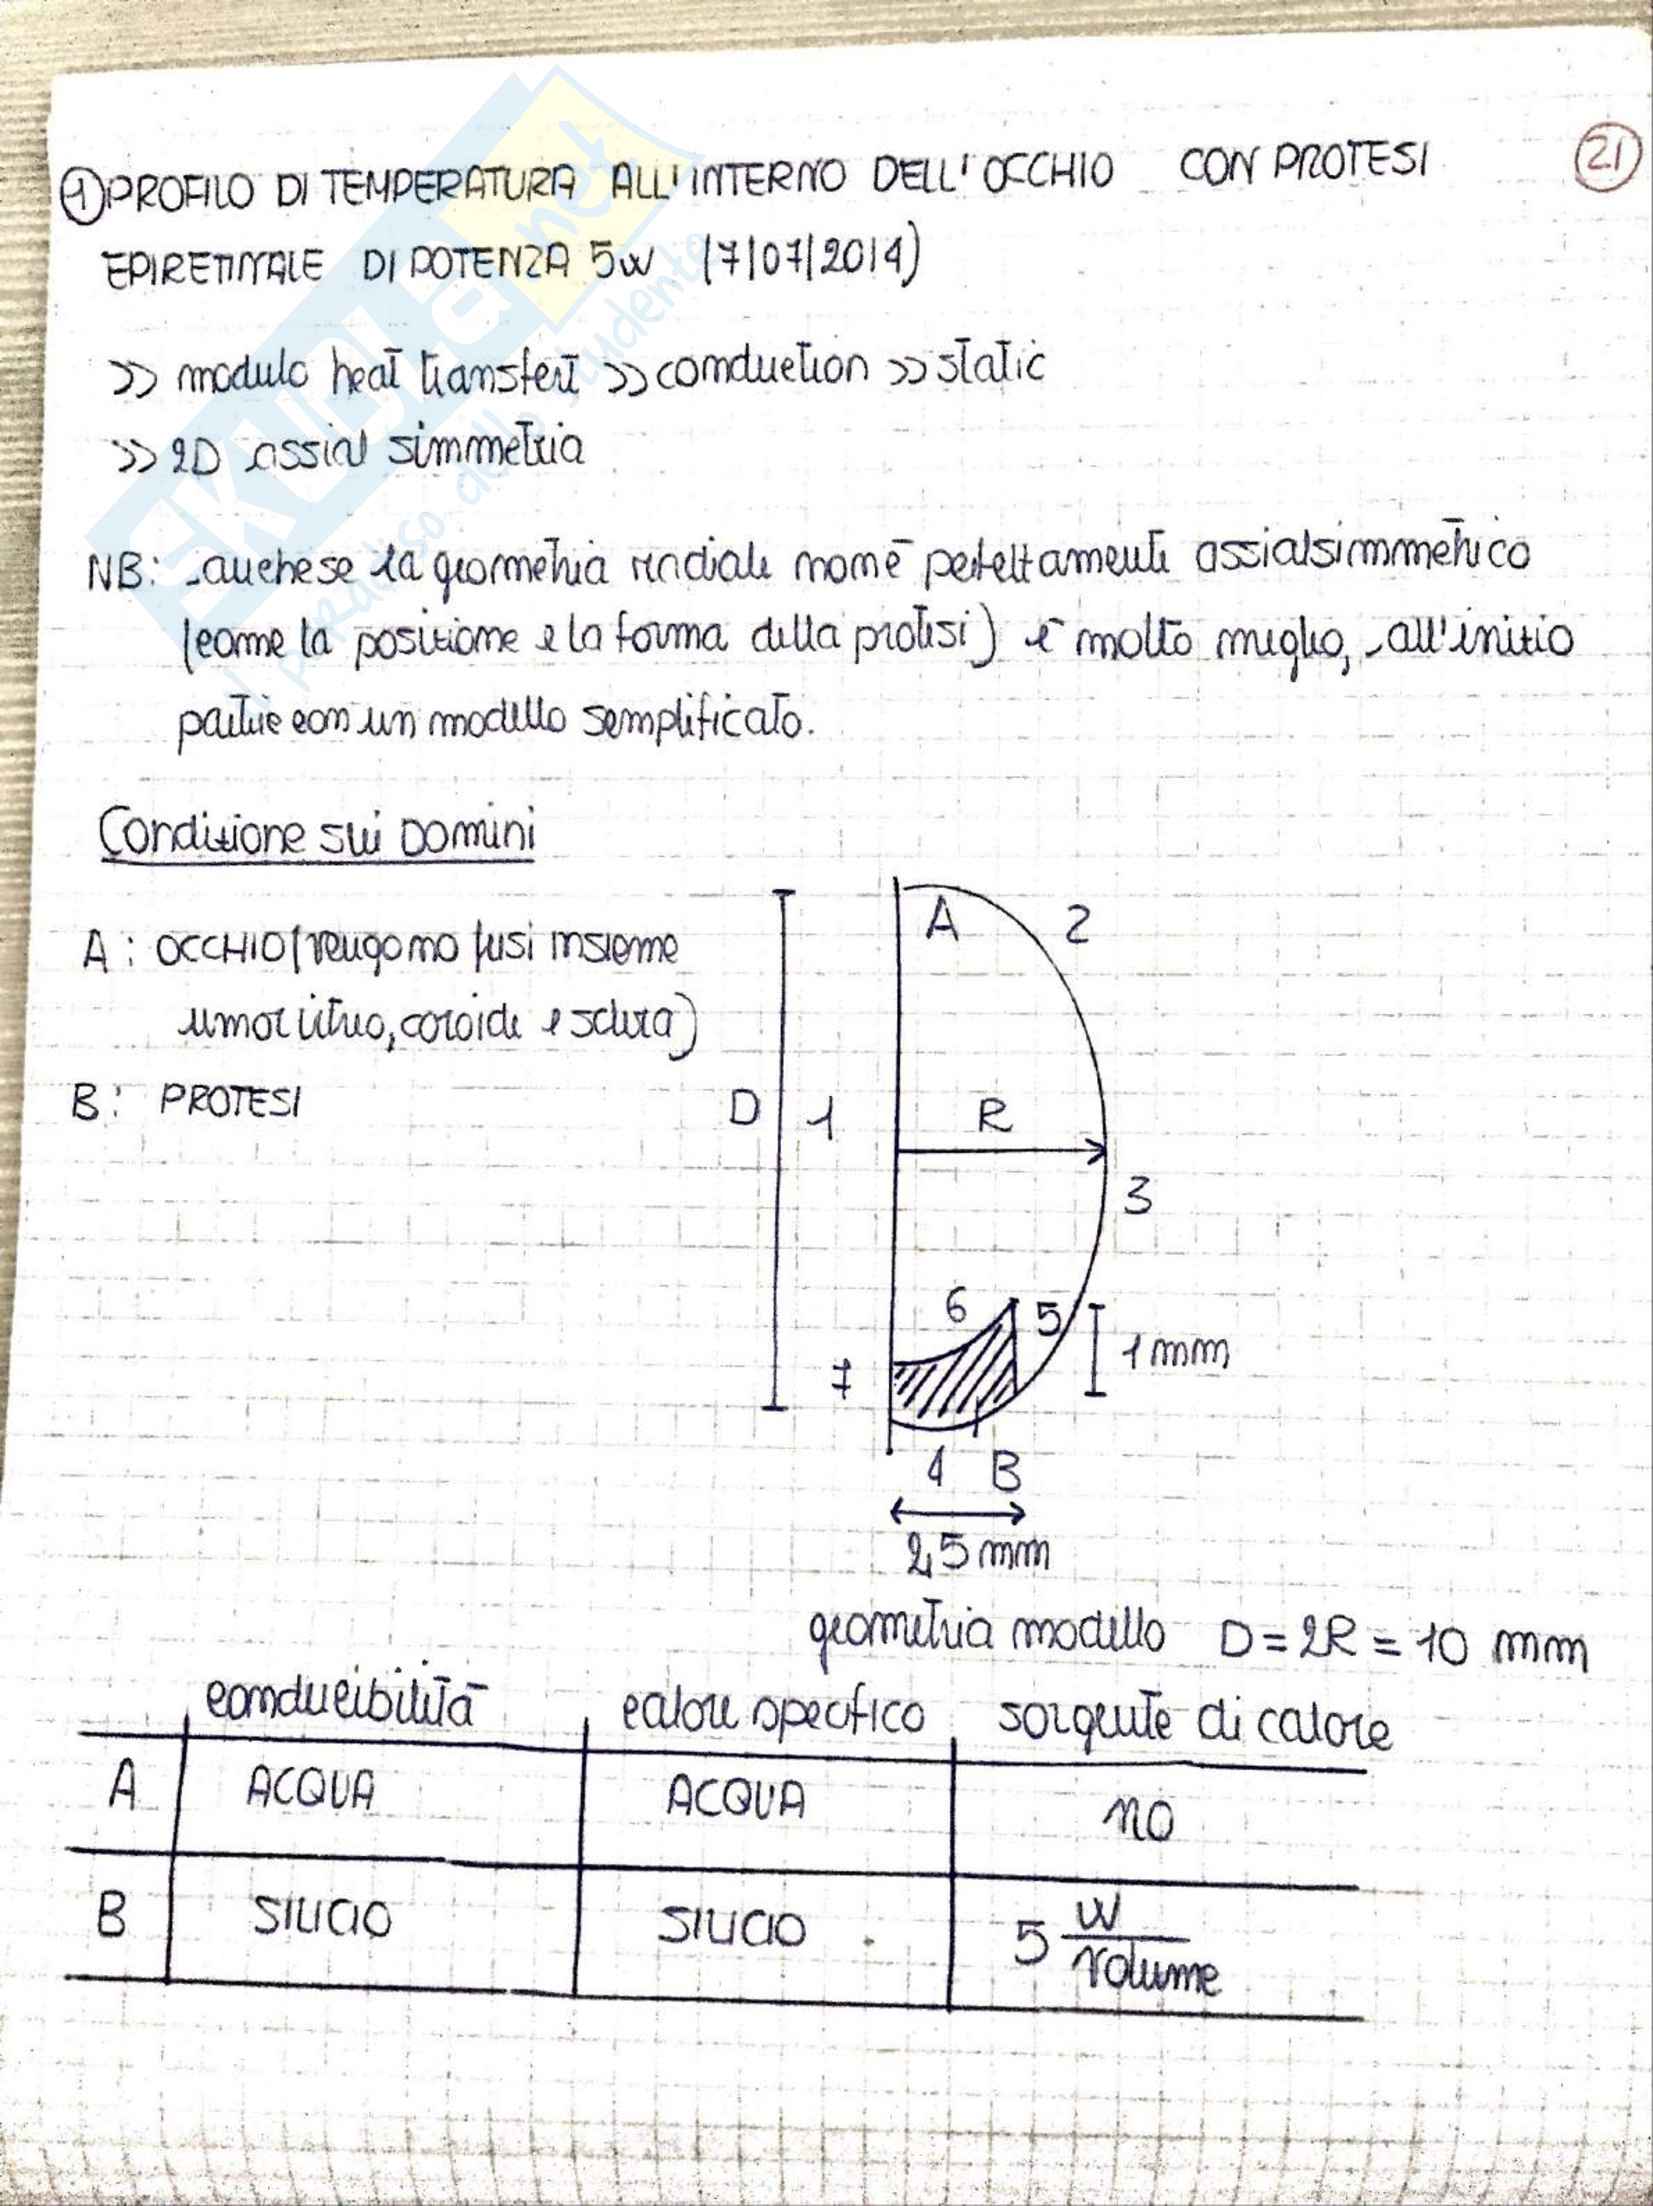 ① PROFILO DI TEMPERATURA ALL'INTERNO DELL'OCCHIO CON PROTESI
21
EPIRETINALE DI POTENZA 5W (7/07/2014)
>> modulo heat transfert >> conduction >> static
>> 2D assial simmetria
NB: anche se la geometria radiale non è perfettamente assialsimmetrico
(come la posizione e la forma della protesi) è molto meglio, all'inizio
partire con un modello semplificato.
Condizione sui Domini
A : OCCHIO (vengono fusi insieme
umor vitreo, coroide e sclera)
B : PROTESI
A
2
D
1
R
3
6
5
1 mm
7
4
B
2,5 mm
geometria modello D = 2R = 10 mm
conducibilità calore specifico sorgente di calore
A ACQUA ACQUA NO
B SILICIO SILICIO 5 W/volume
SKUOLA.net
il paradiso dello studente